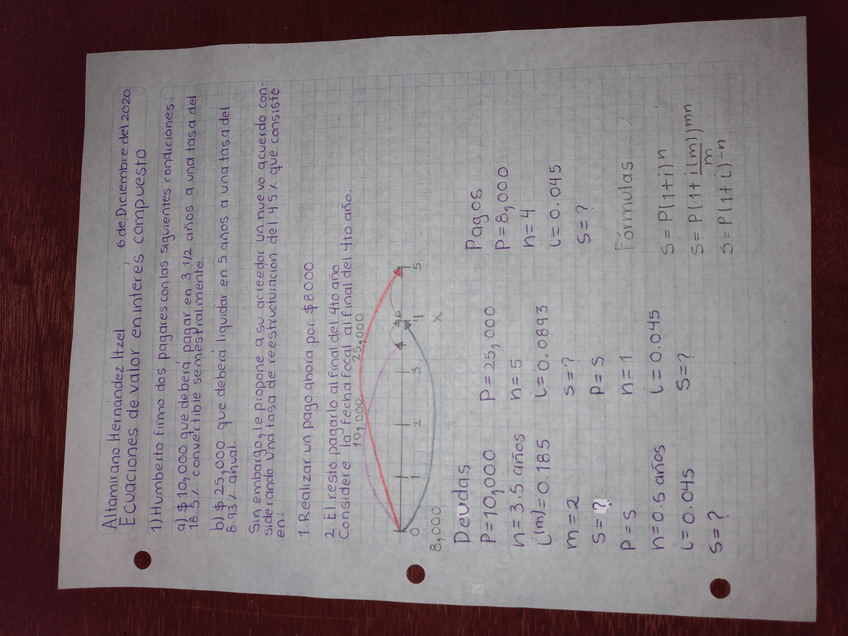 Altamirano Hernández Itzel 6 de Diciembre del 2020
Ecuaciones de valor en interés compuesto
1) Humberto firmo dos pagares con las siguientes condiciones:
a) $10,000 que deberá pagar en 3 1/2 años a una tasa del
18.5% convertible semestralmente.
b) $25,000 que deberá liquidar en 5 años a una tasa del
8.93% anual.
Sin embargo, le propone a su acreedor un nuevo acuerdo con-
siderando una tasa de reestructuración del 4.5% que consiste
en:
1. Realizar un pago ahora por $8000
2. El resto pagarlo al final del 4to año
Considere la fecha focal al final del 4to año.
10,000 25,000
0 1 2 3 4 5
8,000 X
Deudas
P=10,000
n=3.5 años
i(m)=0.185
m=2
S=?
P=S
n=0.5 años
i=0.045
S=?
P=25,000
n=5
i=0.0893
S=?
P=S
n=1
i=0.045
S=?
Pagos
P=8,000
n=4
i=0.045
S=?
Fórmulas
S=P(1+i)n
S=P(1+i(m))mn
m
S=P(1+i)-n